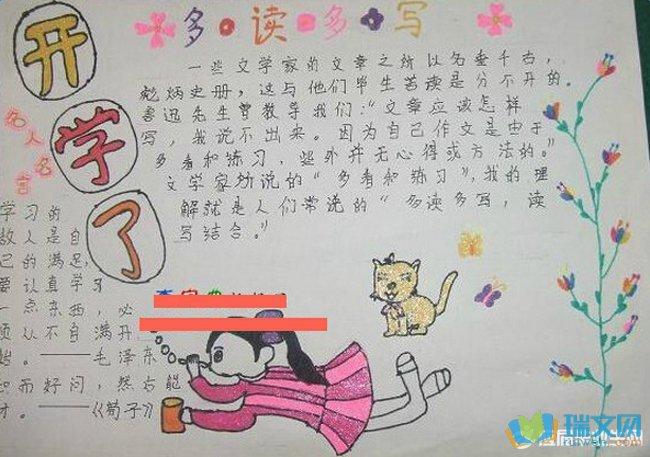 开学了
多读多写
一些文学家的文章之所以名垂千古,
彪炳史册,这与他们毕生苦读是分不开的。
鲁迅先生曾教导我们:“文章应该怎样
写,我说不出来。因为自己作文是由于
多看和练习,些外并无心得或方法的。”
文学家所说的“多看和练习”,我的理
解就是人们常说的“多读多写,读
写结合。”
名人名言
学习的
敌人是自
己的满足,
要认真学习
一点东西,必
须从不自满开
始。——毛泽东
知而好问,然后能
才。——《荀子》
瑞文网